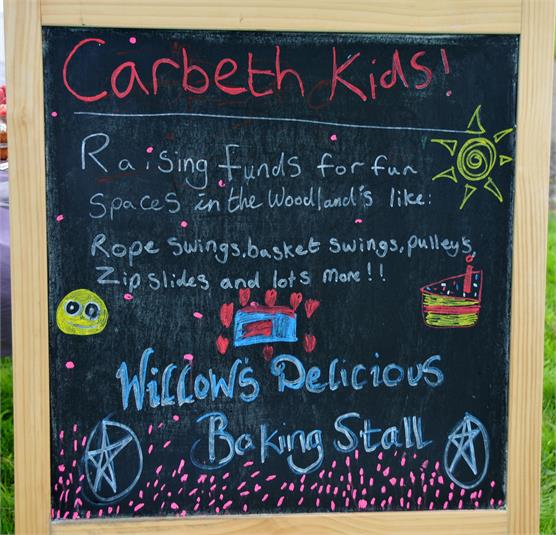 Carbeth Kids!
Raising Funds for fun
Spaces in the Woodland's like:
Rope swings, basket swings, pulleys,
Zip slides and lots more!!
Willow's Delicious
Baking Stall